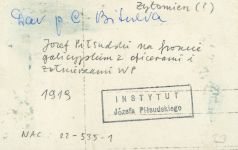 Żytomierz (?)
Dar p. C. Bitulda
Józef Piłsudski na froncie
galicyjskim z oficerami i
żołnierzami WP
1919
INSTYTUT
Józefa Piłsudskiego
NAC: 22-535-1